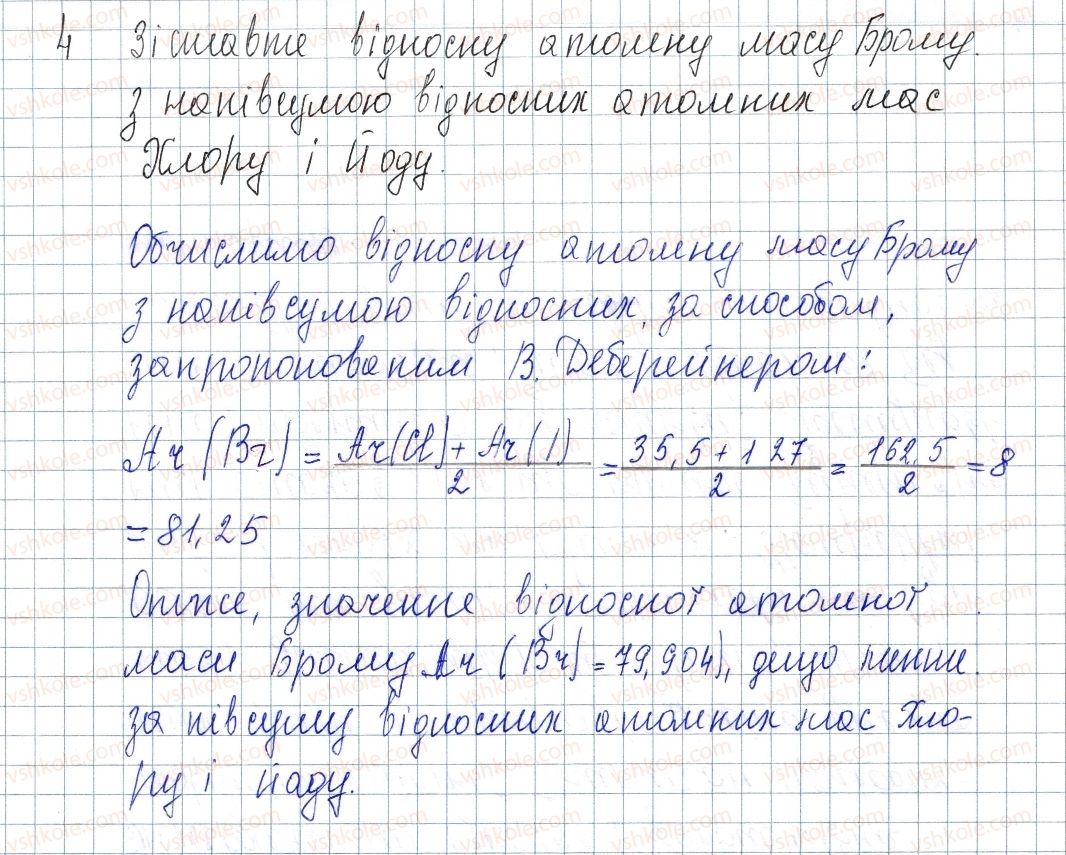 4 Зіставте відносну атомну масу Брому.
з напівсумою відносних атомних мас
Хлору і Йоду.
Обчислимо відносну атомну масу Брому
з напівсумою відносних, за способом,
запропонованим В. Деберейнером:
Ar (Br) = Ar(Cl) + Ar(I) / 2 = 35,5 + 127 / 2 = 162,5 / 2 = 8
= 81,25
Отже, значення відносної атомної
маси Брому Ar (Br) = 79,904), дещо
за півсуму відносних атомних мас Хло-
ру і Йоду.